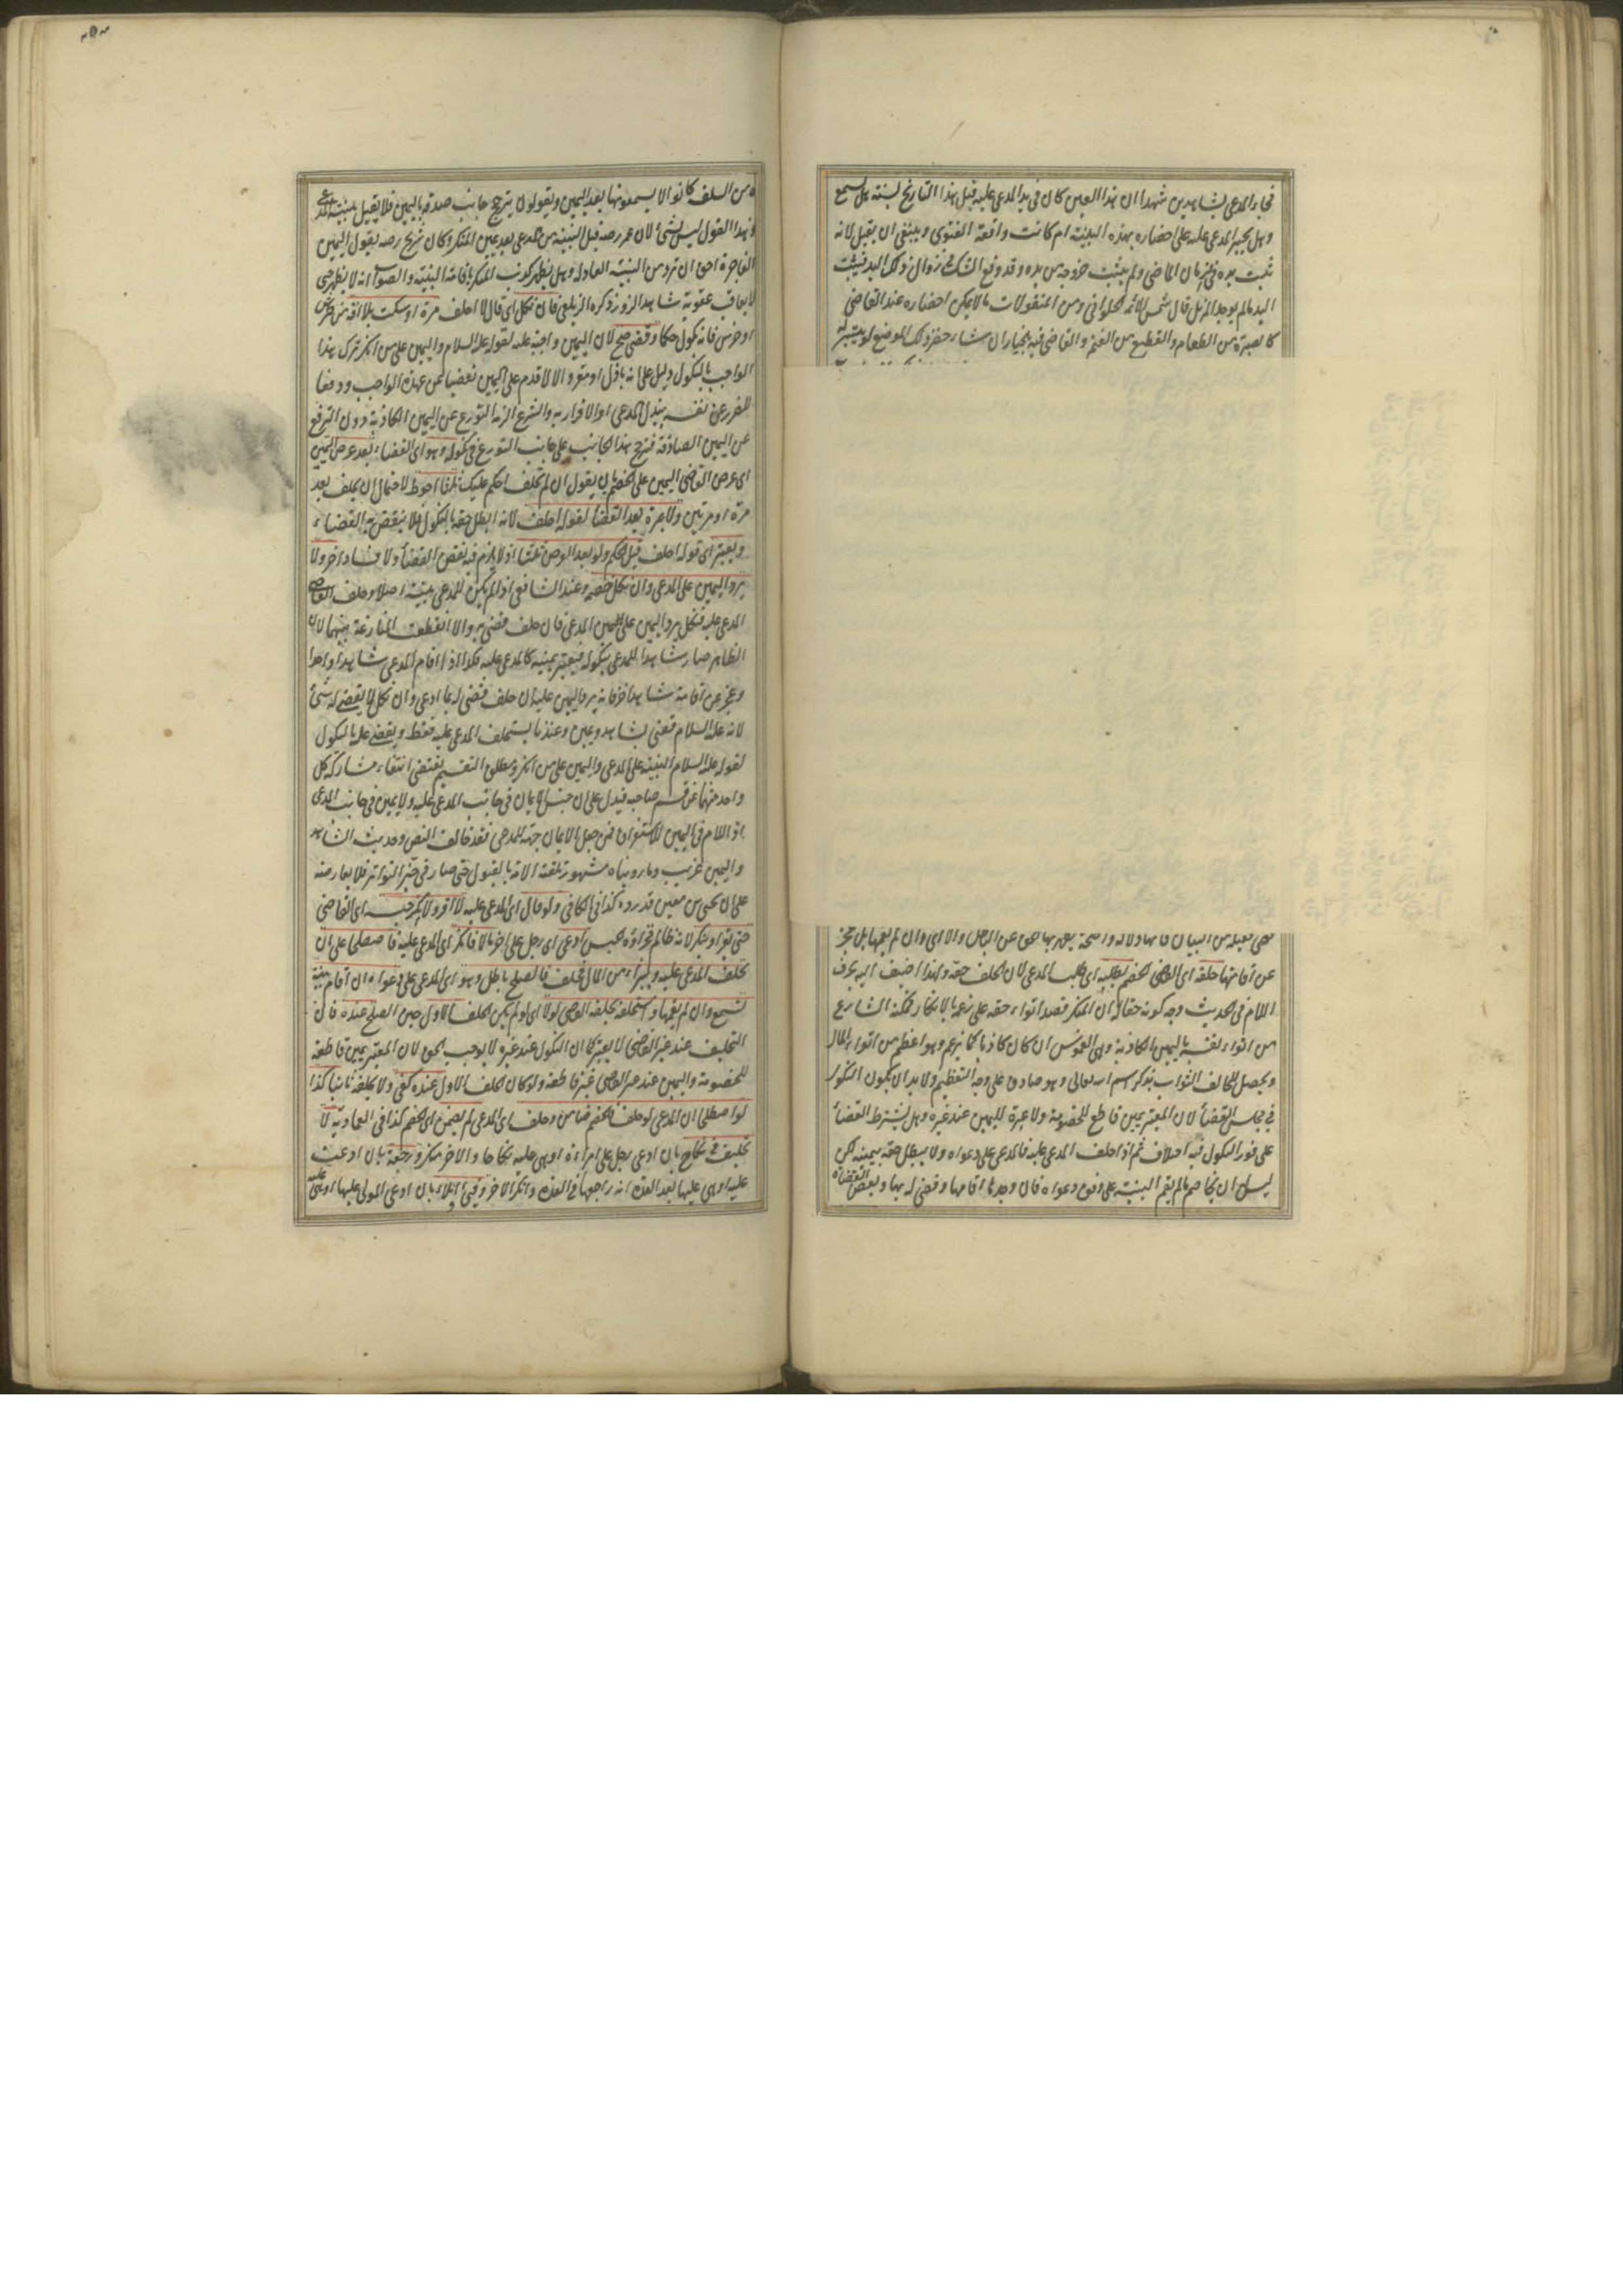 فجاء المدعي بشاهدين شهدا ان هذا العين كان في يد المدعى عليه قبل هذا التاريخ لسنة هل يسمع
وهل يجبر المدعى عليه على احضاره بهذه البينة ام لا كانت واقعة الفتوى وينبغي ان يقبل لانه
ثبت يده في الزمان الماضي ولم يثبت خروجه من يده وقد وقع الشك في زوال ذلك اليد فيثبت
اليد ما لم يوجد المزيل قال شمس الائمة الحلواني ومن المنقولات ما لا يمكن احضاره عند القاضي
كالصبرة من الطعام والقطيع من الغنم والقاضي فيه بخيار ان شاء حضر ذلك الموضع لو يتيسر له
عن اقامتها حلفه اي القاضي الخصم بطلبه اي طلب المدعي لان الحلف حقه ولهذا اضيف اليه بحرف
اللام في الحديث وجه كونه حقا له ان المنكر قصد اتواء حقه على زعمه بالانكار فمكنه الشارع
من اتواء نفسه باليمين الكاذبة وهي الغموس ان كان كاذبا كما يزعم وهو اعظم من اتواء المال
ويحصل للحالف الثواب بذكر اسم الله تعالى وهو صادق على وجه التعظيم ولا بد ان يكون النكول
في مجلس القضاء لان المعتبر يمين قاطع للخصومة ولا عبرة لليمين عند غيره وهل يشترط القضاء
على فور النكول فيه اختلاف ثم اذا حلف المدعى عليه فالمدعي على دعواه ولا يبطل حقه بيمينه لكن
ليس له ان يخاصم ما لم يقم البينة على وفق دعواه فان وجدها اقامها وقضي له بها وبعض القضاة
من السلف كانوا لا يسمعونها بعد اليمين ويقولون يترجح جانب صدقه باليمين فلا يقبل بينة المدعي
وهذا القول ليس بشيء لان عمر رضه قبل البينة من المدعي بعد يمين المنكر وكان شريح رضه يقول اليمين
الفاجرة احق ان ترد من البينة العادلة وهل يظهر كذب المنكر باقامة البينة والصواب انه لا يظهر حتى
لا يعاقب عقوبة شاهد الزور ذكره الزيلعي فان نكل اي قال لا احلف مرة او سكت بلا آفة من طرش
او خرس فانه نكول حكما وقضي صح لان اليمين واجبة عليه لقوله عليه السلام واليمين على من انكر ترك هذا
الواجب بالنكول دليل على انه باذل او مقر والا لاقدم على اليمين تفصيا عن عهدة الواجب ودفعا
للضرر عن نفسه ببذل المدعى او الاقرار به والشرع الزمه التورع عن اليمين الكاذبة دون الترفع
عن اليمين الصادقة فترجح هذا الجانب على جانب التورع في نكوله وهو اي القضاء بعد عرض اليمين
اي عرض القاضي اليمين على الخصم بان يقول ان لم تحلف احكم عليك ثلثا احوط لاحتمال ان يحلف بعد
مرة او مرتين ولا عبرة بعد القضا لقوله احلف لانه ابطل حقه بالنكول فلا ينقض به القضاء
ويعتبر اي قوله احلف قبل الحكم ولو بعد العرض ثلثا اذ لا يلزم فيه نقض القضاء ولا فساد اخر ولا
يرد اليمين على المدعي وان نكل خصمه وعند الشافعي اذا لم يكن للمدعي بينة اصلا وحلف القاضي
المدعى عليه فنكل يرد اليمين على المدعي فان حلف قضي به والا انقطعت المنازعة بينهما لان
الظاهر صار شاهدا للمدعي بنكوله فيعتبر يمينه كالمدعى عليه فكذا اذا اقام المدعي شاهدا واحدا
وعجز عن اقامة شاهد اخر فانه يرد اليمين عليه ان حلف قضي له بما ادعى وان نكل لا يقضى له بشيء
لانه عليه السلام قضى بشاهد ويمين وعندنا يستحلف المدعى عليه فقط ويقضى عليه بالنكول
لقوله عليه السلام البينة على المدعي واليمين على من انكر ومطلق التقسيم يقتضي انتفاء مشاركة كل
واحد منهما عن قسم صاحبه فيدل على ان جنس الايمان في جانب المدعى عليه ولا يمين في جانب المدعي
اذ اللام في اليمين للاستغراق فمن جعل بالايمان حجة للمدعي فقد خالف النص وحديث الشاهد
واليمين غريب وما رويناه مشهور تلقته الامة بالقبول حتى صار في حيز التواتر فلا يعارضه
على ان يحيى بن معين قد رده كذا في الكافي ولو قال اي المدعى عليه لا اقر ولا انكر حبسه اي القاضي
حتى يقر او ينكر لانه ظالم فجزاؤه الحبس ادعى اي رجل على اخر مالا فانكر اي المدعى عليه فاصطلحا على ان
يحلف المدعى عليه ويبرأ من المال فحلف فالصلح باطل وهو اي المدعي على دعواه ان اقام بينة
تسمع وان لم يقمها واستحلفه يحلفه القاضي لو لا اي لو لم يكن الحلف الاول حين الصلح عنده فان
التحليف عند غير القاضي لا يعتبر كما ان النكول عند غيره لا يوجب الحق لان المعتبر يمين قاطعة
للخصومة واليمين عند غير القاضي غير قاطعة ولو كان الحلف الاول عنده كفى ولا يحلفه ثانيا كذا
لو اصطلحا ان المدعي لو حلف فالخصم ضامن وحلف اي المدعي لم يضمن اي الخصم كذا في العمادية لا
تحليف في نكاح بان ادعى رجل على امراءة او هي عليه نكاحا والاخر منكر ورجعة بان ادعت
عليه او هي عليها بعد العدة انه راجعها في العدة وانكر الاخر وفيء ايلاء بان ادعى المولي عليها او هي عليه